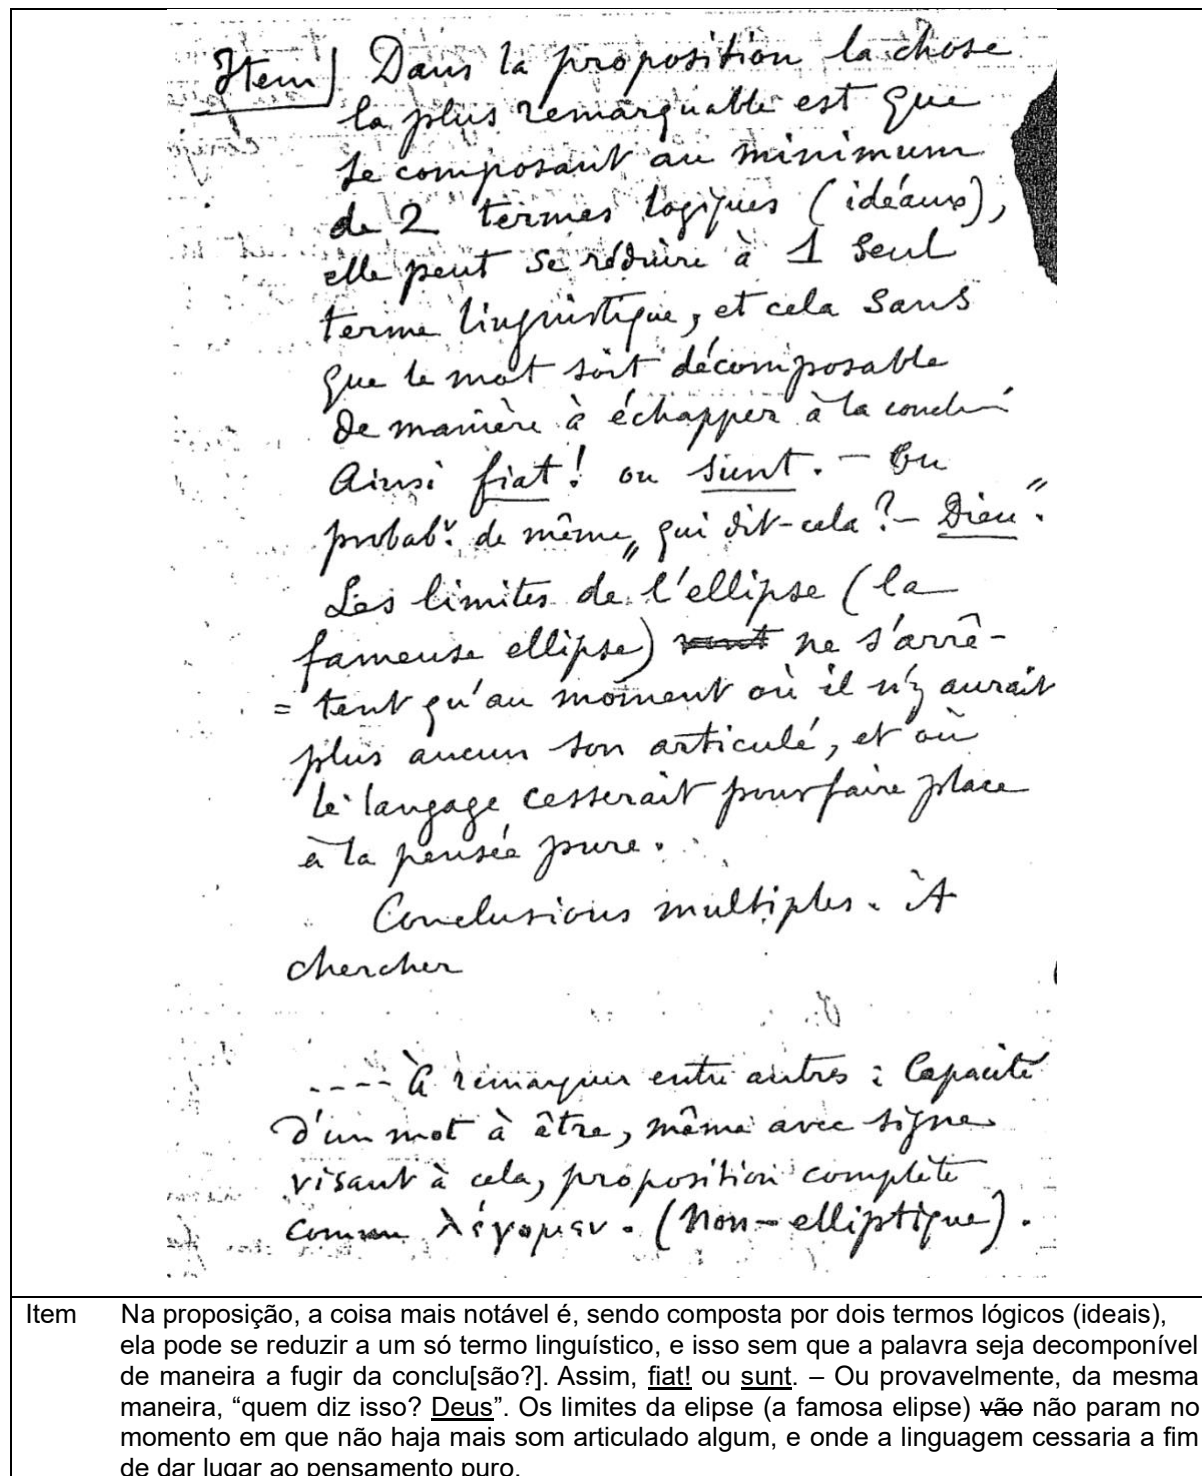 Item Dans la proposition la chose
la plus remarquable est que
se composant au minimum
de 2 termes logiques (idéaux),
elle peut se réduire à 1 seul
terme linguistique, et cela sans
que le mot soit décomposable
de manière à échapper à la
Ainsi fiat! ou sunt. – Ou
probabt. de même „qui dit-cela? – Dieu".
Les limites de l'ellipse (la
fameuse ellipse) ne s'arrê-
= tent qu'au moment où il n'y aurait
plus aucun son articulé, et où
le langage cesserait pour faire place
à la pensée pure.
Conclusions multiples. A
chercher
---- A remarquer entre autres : Capacité
d'un mot à être, même avec signe
visant à cela, proposition complète
comme λέγομεν. (Non-elliptique).
Item Na proposição, a coisa mais notável é, sendo composta por dois termos lógicos (ideais),
ela pode se reduzir a um só termo linguístico, e isso sem que a palavra seja decomponível
de maneira a fugir da conclu[são?]. Assim, fiat! ou sunt. – Ou provavelmente, da mesma
maneira, “quem diz isso? Deus”. Os limites da elipse (a famosa elipse) vão não param no
momento em que não haja mais som articulado algum, e onde a linguagem cessaria a fim
de dar lugar ao pensamento puro.